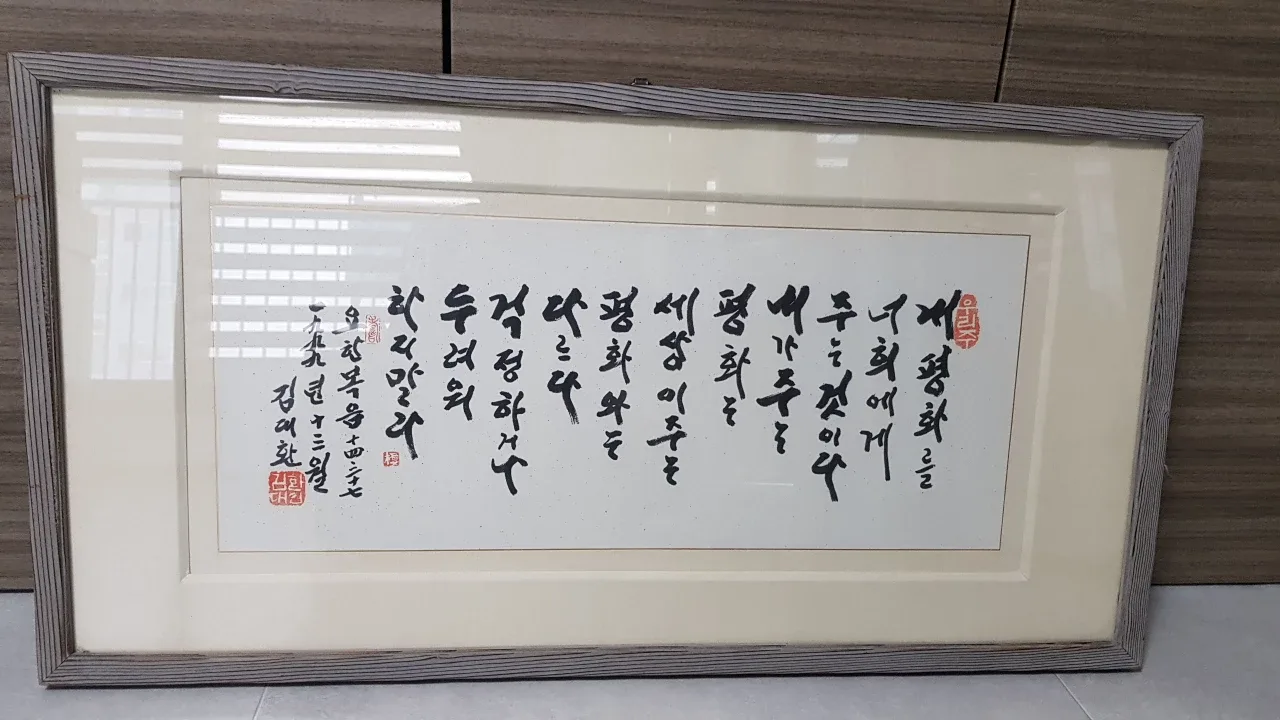 우리주
내 평화를
너희에게
주는것이다
내가주는
평화는
세상이주는
평화와는
다르다
걱정하거나
두려워
하지말라
요한복음 十四 二十七
一九九九년 十二월
김대환